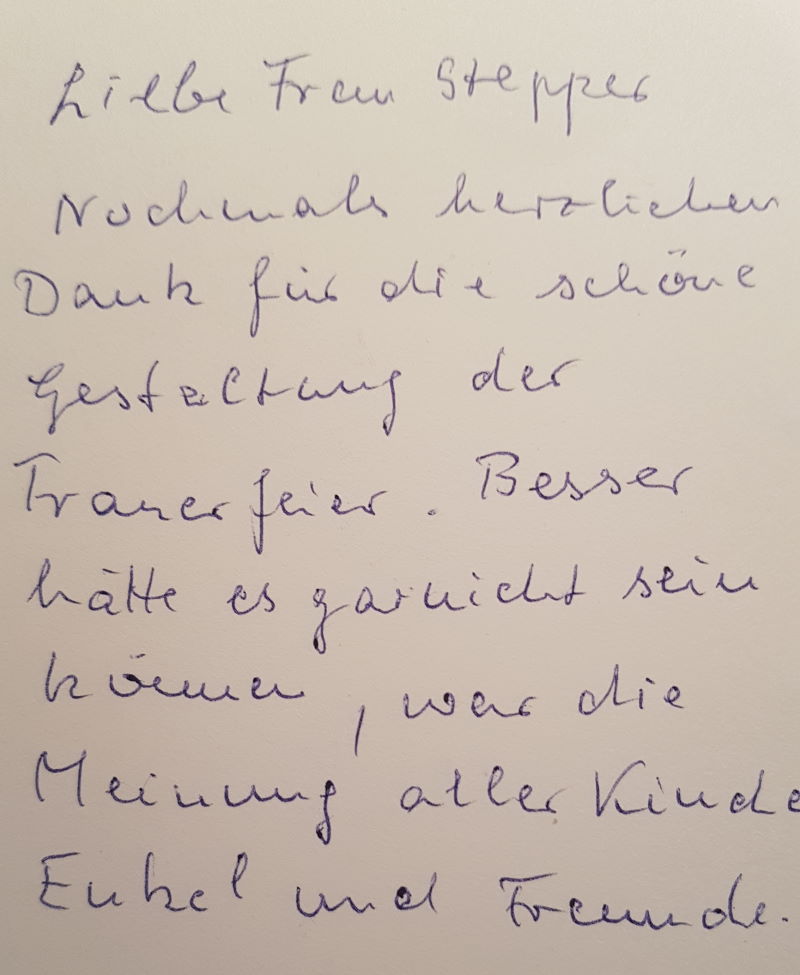 Liebe Frau Stepper
Nochmals herzlichen
Dank für die schöne
Gestaltung der
Trauerfeier. Besser
hätte es garnicht sein
können, war die
Meinung aller Kinde
Enkel und Freunde.